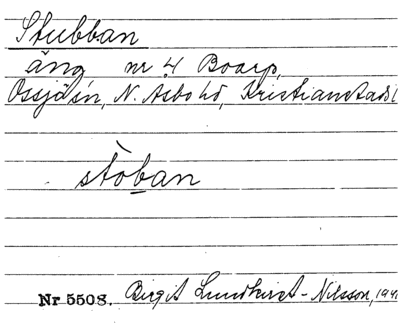 Stubban
äng nr 4 Boarp,
Össjö sn, N. Åsbo hd, Kristianstads l
stòban
Nr 5508. Birgit Lundkvist-Nilsson, 194